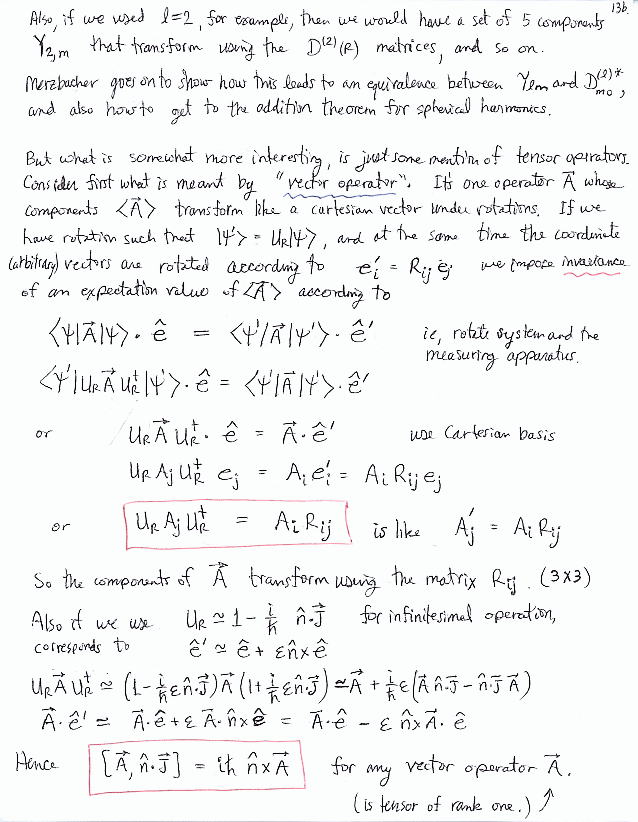 13b
Also, if we used l=2, for example, then we would have a set of 5 components
Y₂,ₘ that transform using the D⁽²⁾(R) matrices, and so on.
Merzbacher goes on to show how this leads to an equivalence between Yₗₘ and Dₘ₀⁽ˡ⁾*,
and also how to get to the addition theorem for spherical harmonics.
But what is somewhat more interesting, is just some mention of tensor operators.
Consider first what is meant by "vector operator". It's one operator A⃗ whose
components <A⃗> transform like a cartesian vector under rotations. If we
have rotation such that |ψ'> = U_R|ψ>, and at the same time the coordinate
(arbitrary) vectors are rotated according to e'ᵢ = Rᵢⱼ eⱼ we impose invariance
of an expectation value of <A⃗> according to
<ψ|A⃗|ψ>· ê = <ψ'|A⃗|ψ'>· ê' ie, rotate system and the
measuring apparatus.
<ψ'|U_R A⃗ U_R†|ψ'>· ê = <ψ'|A⃗|ψ'>· ê'
or U_R A⃗ U_R† · ê = A⃗· ê' use Cartesian basis
U_R Aⱼ U_R† eⱼ = Aᵢ e'ᵢ = Aᵢ Rᵢⱼ eⱼ
or U_R Aⱼ U_R† = Aᵢ Rᵢⱼ is like A'ⱼ = Aᵢ Rᵢⱼ
So the components of A⃗ transform using the matrix Rᵢⱼ. (3×3)
Also if we use U_R ≃ 1 - i/ħ n̂·J⃗ for infinitesimal operation,
corresponds to ê' ≃ ê + ε n̂×ê
U_R A⃗ U_R† ≃ (1 - i/ħ ε n̂·J⃗) A⃗ (1 + i/ħ ε n̂·J⃗) ≃ A⃗ + i/ħ ε (A⃗ n̂·J⃗ - n̂·J⃗ A⃗)
A⃗· ê' ≃ A⃗·ê + ε A⃗· n̂×ê = A⃗·ê - ε n̂×A⃗· ê
Hence [A⃗, n̂·J⃗] = iħ n̂×A⃗ for any vector operator A⃗.
(is tensor of rank one.) ↑